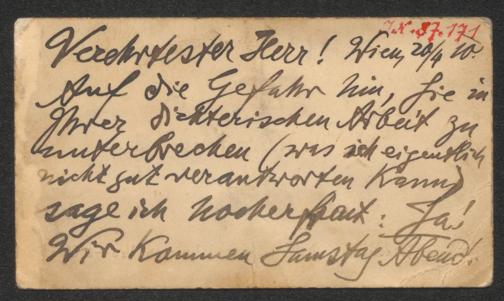 I.N. 37.171
Verehrtester Herr! Wien, 20/4 10.
Auf die Gefahr hin, Sie in
Ihrer dichterischen Arbeit zu
unterbrechen (was ich eigentlich
nicht gut verantworten kann)
sage ich hocherfreut: Ja!
Wir kommen Samstag Abend.